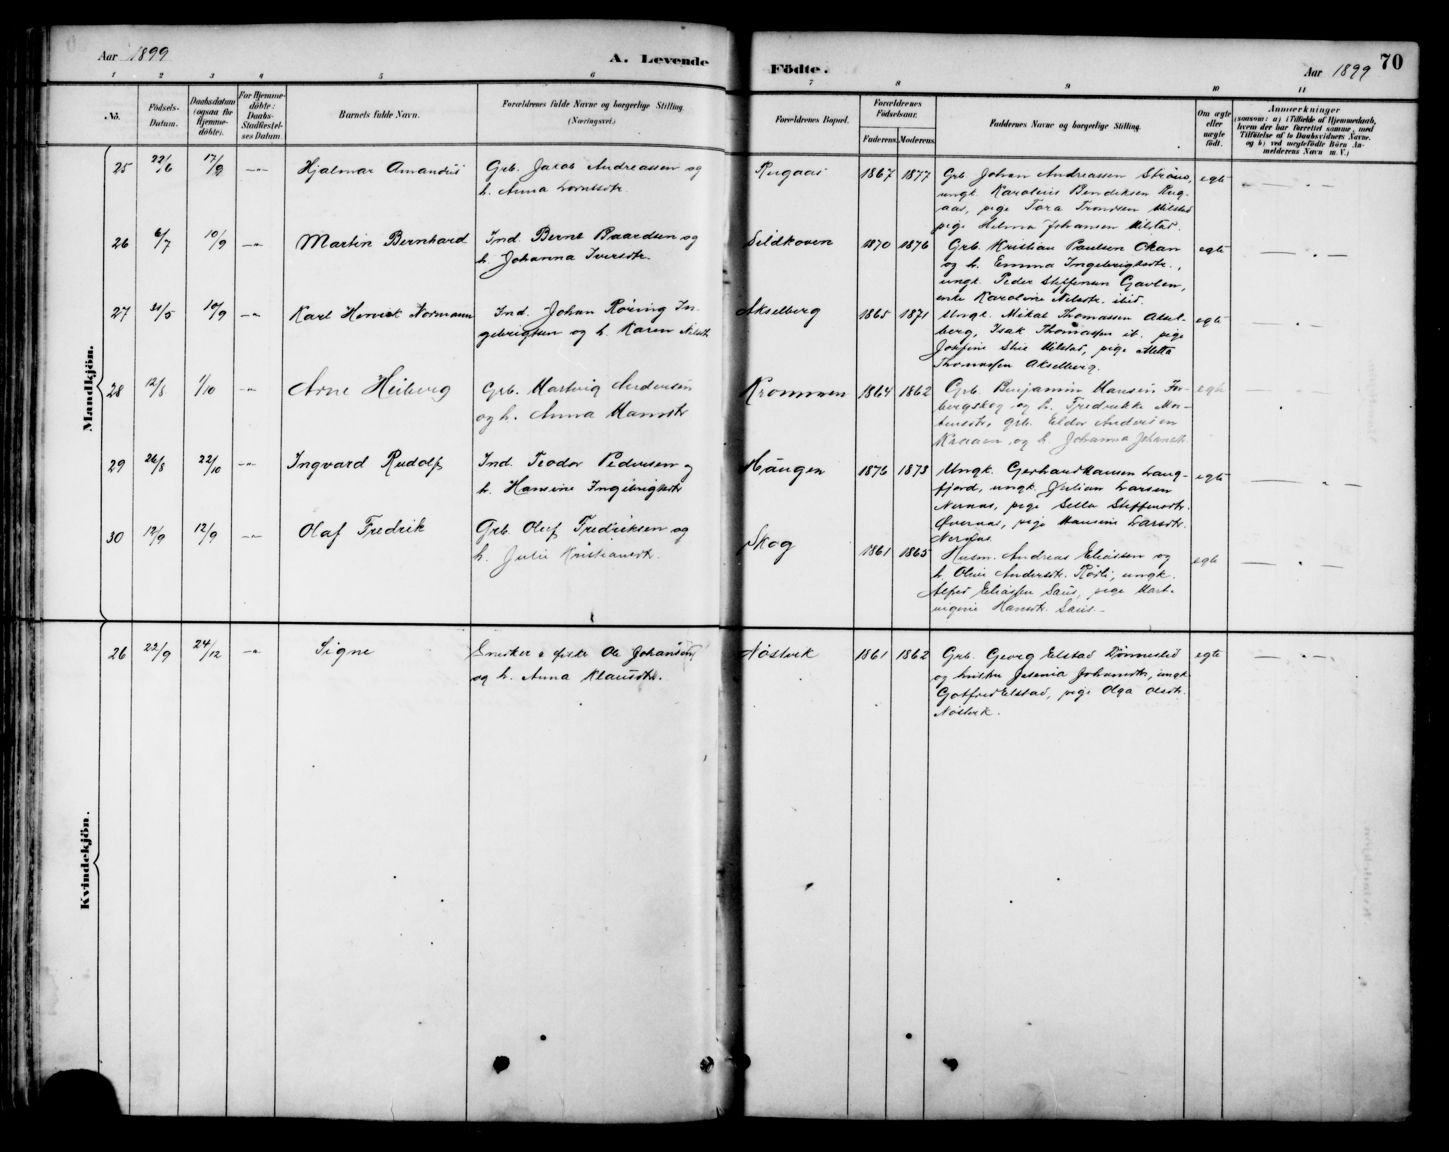 Aar 1899
A. Levende
Födte.
Aar 1899
70
1 2 3 4 5 6 7 8 9 10 11
No.
Födsels-Datum.
Daabsdatum (ogsaa for Hjemme-döbte).
For Hjemme-döbte: Daabs-Stadfæstel-ses Datum.
Barnets fulde Navn.
Forældrenes fulde Navne og borgerlige Stilling (Næringsvei)
Forældrenes Bopæl.
Forældrenes Födselsaar.
Faderens. Moderens.
Faddernes Navne og borgerlig Stilling.
Om ægte eller uægte födt.
Anmærkninger
Mandkjön.
25 22/6 17/9 -"- Hjalmar Amandus
Grb. Jacob Andreassen og
h. Anna Lorntsdtr.
Rugaas 1867 1877
Grb Johan Andreassen
ungk. Karolius Bendiksen Rug-
aas, pige Tora Trondsen Milstad
pige Helma Johansen Milstad.
egte
26 6/7 10/9 -"- Martin Bernhard
Ind. Bernt Paardsen og
h. Johanna Iversdtr.
Sildhoven 1870 1876
Grb. Kristian Paulsen Okan
og h. Emma Ingebrigtsdtr.,
ungk. Peder Steffensen Gavlen,
enke Karoline Nilsdtr. ibid.
egte
27 21/5 10/9 -"- Karl Hervik Normann
Ind. Johan Röring In-
gebrigtsen og h. Karen Nilsdtr
Akselberg 1865 1871
Ungk. Mikal Thomassen Aksel-
berg, Isak Thomassen ib. pige
Josefine Milstad, pige Metta
Thomassen Akselberg.
egte
28 12/8 1/10 -"- Arne Heiberg
Grb. Hartvig Andersen
og h. Anna Hansdtr
Krommen 1864 1862
Grb. Benjamin Hansen Tor-
bergskog og h. Fredrikke Mor-
tensdtr, grb. Eldor Andersen
og h. Johanna Johansdtr.
egte
29 26/8 22/10 -"- Ingvard Rudolf
Ind. Teodor Pedersen og
h. Hansine Ingebrigtsdtr
Haugen 1876 1873
Ungk. Gerhard Hansen Lang-
fjord, ungk. Julian Larsen
Nernas, pige Sella Steffensdtr.
Övernas, pige Hansine Larsdtr.
Nernas.
egte
30 12/9 12/9 -"- Olaf Fredrik
Grb. Oluf Fredriksen og
h. Julie Kristiansdtr.
Skog 1861 1865
Husm. Andreas Eliassen og
h. Oline Andersdtr. Rödli, ungk.
Alfred Eliassen Saus, pige Hart-
vigine Hansdtr. Saus.
egte
Kvindekjön.
26 22/9 24/12 -"- Signe
Snekker o fisker Ole Johansen
og h. Anna Klausdtr.
Nöstvik 1861 1862
Grb. Georg Elstad Dönnestad
og hustru Jesenia Johansdtr, ungk
Gotfred Elstad, pige Olga Olsdtr.
Nöstvik.
egte